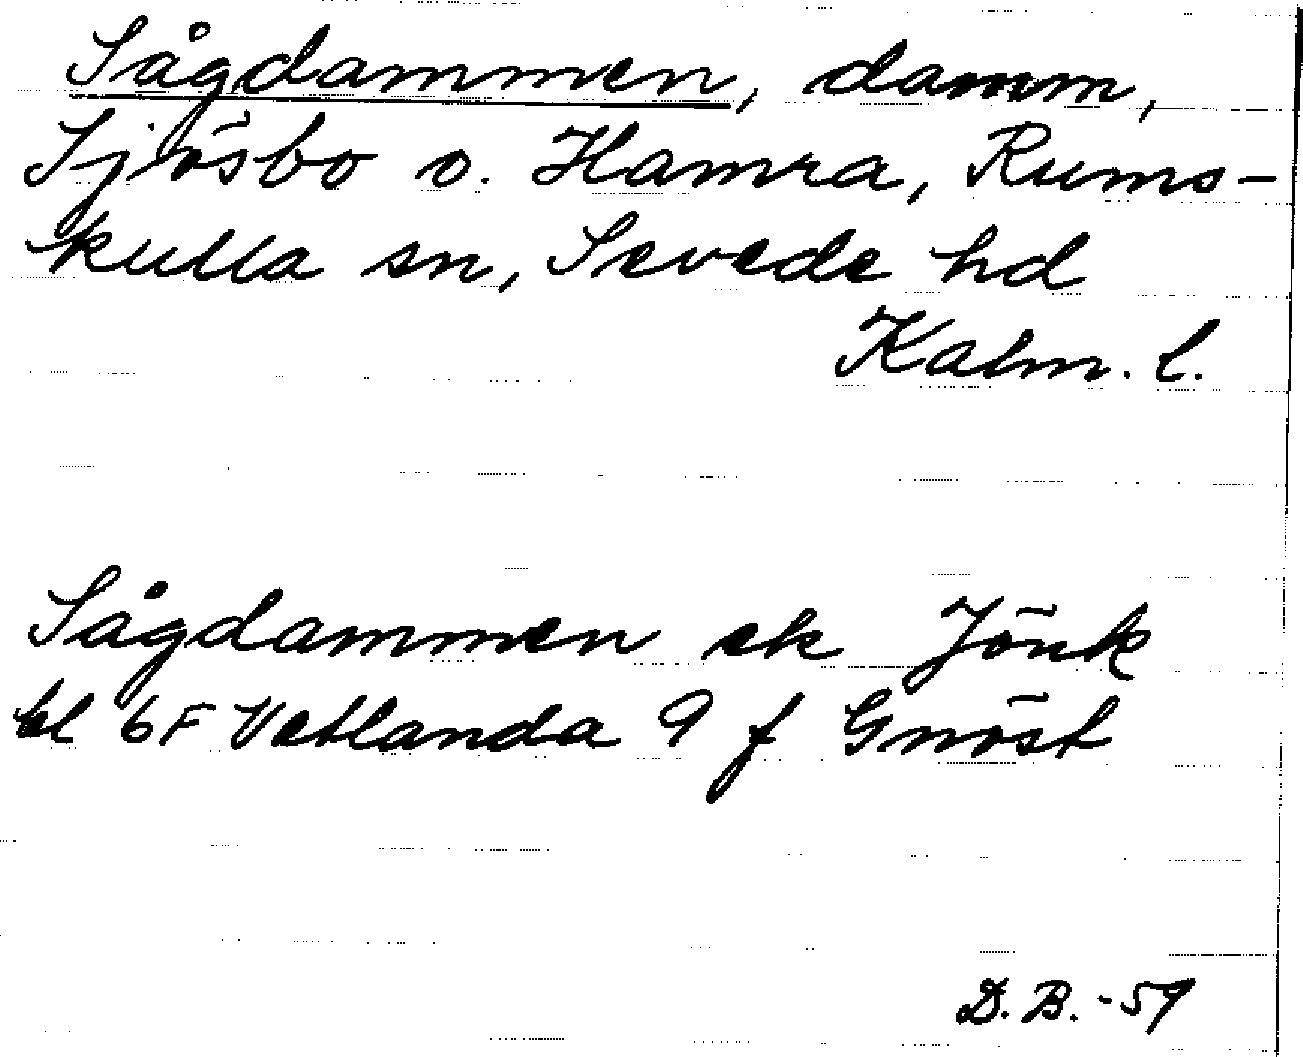 Sågdammen, damm,
Sjösbo o. Hamra, Rums-
kulla sn, Sevede hd
Kalm. l.
Sågdammen ek Jönk
bl 6F Vetlanda 9 f Gnöst
D. B. -59